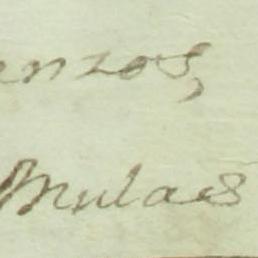 enzos,
Mulas